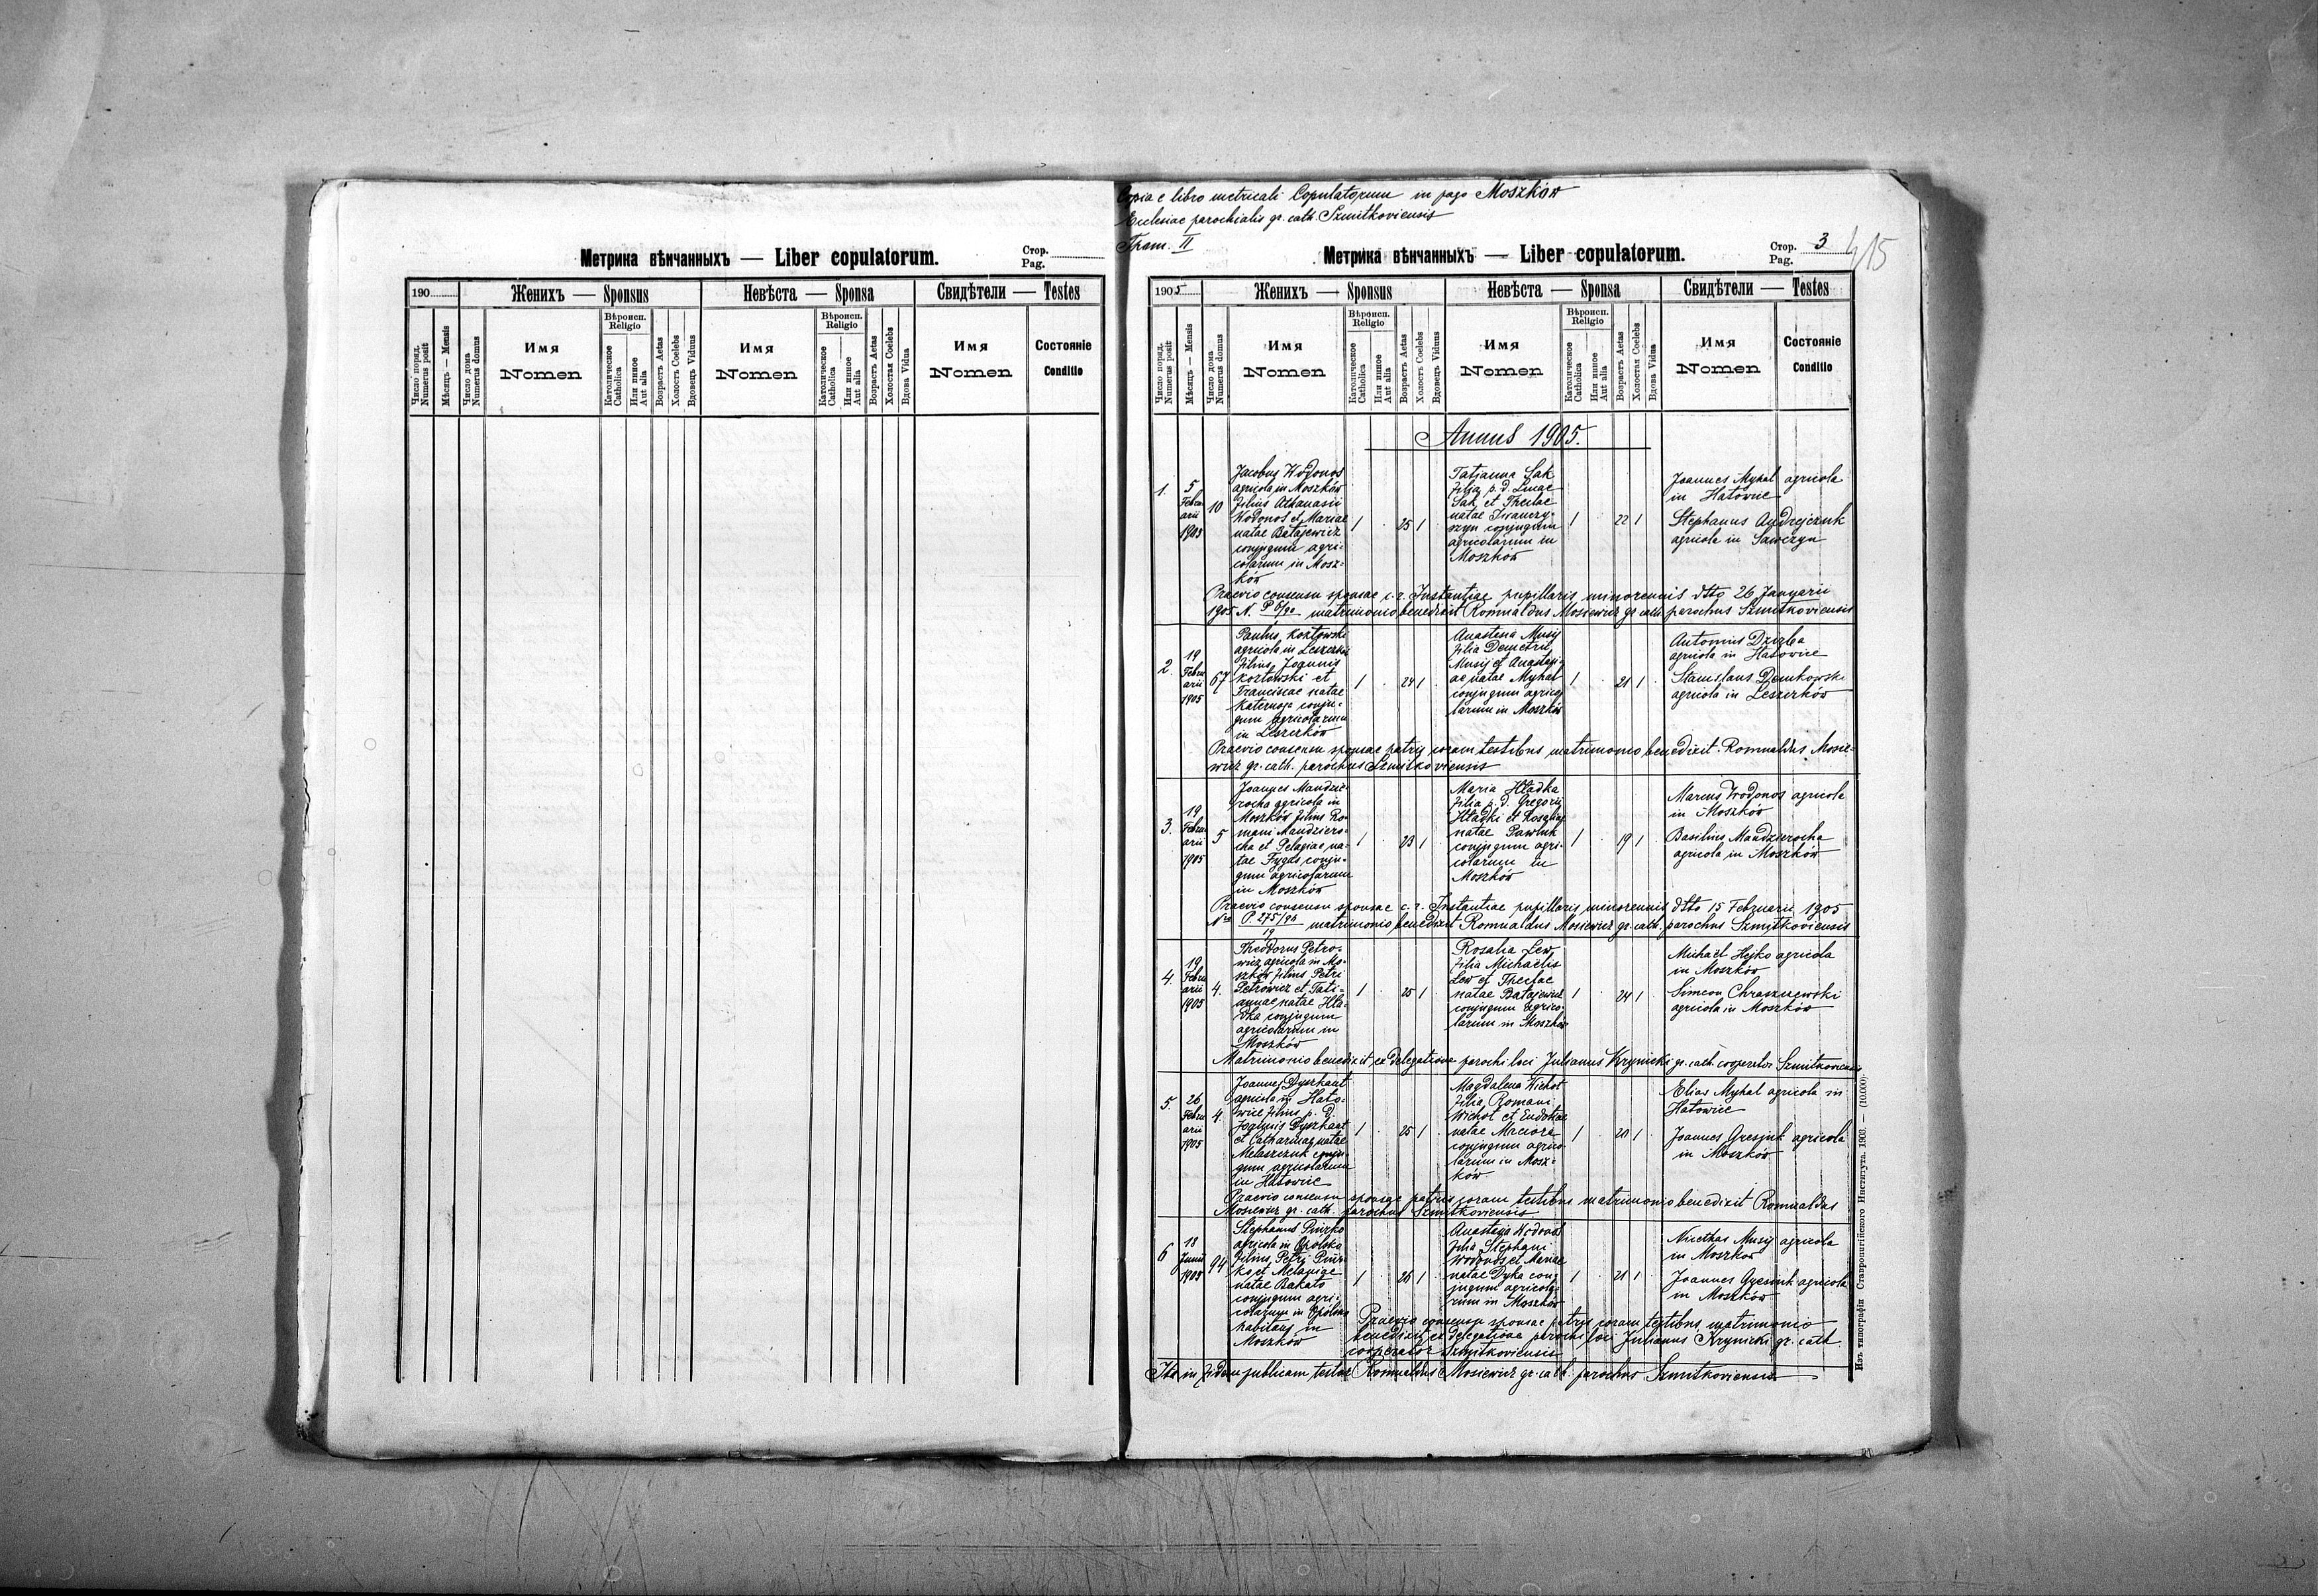 Метрика вѣнчанныхъ — Liber copulatorum.
Стор.
Pag.
190
Женихъ — Sponsus
Невѣста — Sponsa
Свидѣтели — Testes
Число поряд.
Numerus posit
Мѣсяць — Mensis
Число дома
Numerus domus
Имя
Nomen
Вѣроисп.
Religio
Католическое
Catholica
Или инное
Aut alia
Возрастъ Aetas
Холостъ Coelebs
Вдовецъ Viduus
Имя
Nomen
Вѣроисп.
Religio
Католическое
Catholica
Или инное
Aut alia
Возрастъ Aetas
Холостая Coelebs
Вдова Vidua
Имя
Nomen
Состояніе
Conditio
Copia e libro metricali Copulatorum in pago Moszków
Ecclesiae parochialis gr. cath. Szmitkoviensis
Tom. II
Метрика вѣнчанныхъ — Liber copulatorum.
Стор.
Pag. 3
1905
Женихъ — Sponsus
Невѣста — Sponsa
Свидѣтели — Testes
Число поряд.
Numerus posit
Мѣсяць — Mensis
Число дома
Numerus domus
Имя
Nomen
Вѣроисп.
Religio
Католическое
Catholica
Или инное
Aut alia
Возрастъ Aetas
Холостъ Coelebs
Вдовецъ Viduus
Имя
Nomen
Вѣроисп.
Religio
Католическое
Catholica
Или инное
Aut alia
Возрастъ Aetas
Холостая Coelebs
Вдова Vidua
Имя
Nomen
Состояніе
Conditio
Annus 1905.
1.
5
Febru
arii
10
Jacobus Wodonos
agricola in Moszków
filius Athanasii
Wodonos et Mariae
natae Batajewicz
conjugum agri-
colarum in Mosz-
ków
1 25 1
Tatjanna Sak
filia p. d. Lucae
Sak et Theclae
natae Iwanczy-
szyn conjugum
agricolarum in
Moszków
1 22 1
Joannes Myhal agricola
in Hatowice
Stephanus Andrejczuk
agricola in Sawczyn
Praevio consensu sponsae c. r. Instantiae pupillaris minorennis dtto 26 Januarii
1905 N. P 6/90 matrimonio benedixit Romualdus Mosiewicz gr. cath. parochus Szmitkoviensis
2
19
Febru
arii
1905
67
Paulus Kozłowski
agricola in Leszczków
filius Joannis
Kozłowski et
Franciscae natae
conju-
gum agricolarum
in Leszczków
1 24 1
Anastasia Musij
filia Demetrii
Musij et Anastasi-
ae natae Myhal
conjugum agrico
larum in Moszków
1 21 1
Antonius Dziuba
agricola in Hatowice
Stanislaus Demkowski
agricola in Leszczków
Praevio consensu sponsae patris coram testibus matrimonio benedixit Romualdus Mosie-
wicz gr. cath. parochus Szmitkoviensis
3.
19
Febru
arii
1905
5
Joannes Mandzie-
rocha agricola in
Moszków filius Ro-
mani Mandziero-
cha et Pelagiae na-
tae Fygas conju-
gum agricolarum
in Moszków
1 23 1
Maria Hładka
filia p. d. Gregorii
Hładki et Rosaliae
natae Pawluk
conjugum agri-
colarum in
Moszków
1 19 1
Marcus Wodonos agricola
in Moszków
Basilius Mandzierocha
agricola in Moszków
Praevio consensu sponsae c. r. Instantiae pupillaris minorennis dtto 15 Februarii 1905
matrimonio benedixit Romualdus Mosiewicz gr. cath. parochus Szmitkoviensis
4.
19
Febru
arii
1905
4.
Theodorus Petro-
wicz agricola in Mo-
szków filius Petri
Petrowicz et Tati-
annae natae Hła-
dka conjugum
agricolarum in
Moszków
1 25 1
Rosalia Lew
filia Michaelis
Lew et Theclae
natae Batajewicz
conjugum agrico-
larum in Moszków
1 24 1
Michaël Hejko agricola
in Moszków
Simeon Chraszczewski
agricola in Moszków
Matrimonio benedixit ex delegatione parochi loci Julianus Krynicki gr. cath. cooperator Szmitkoviensis
5.
26
Febru
arii
1905
4.
Joannes Dyszkant
agricola in Hato-
wice filius p. d.
Joannis Dyszkant
et Catharinae natae
Melaszczuk conju-
gum agricolarum
in Hatowice
1 25 1
Magdalena Wichot
filia Romani
Wichot et Eudokiae
natae
conjugum agrico
larum in Mosz-
ków
1 20 1
Elias Myhal agricola in
Hatowice
Joannes agricola
in Moszków
Praevio consensu sponsae patris coram testibus matrimonio benedixit Romualdus
Mosiewicz gr. cath. parochus Szmitkoviensis
6
18
Junii
94
Stephanus
agricola in Opolsko
filius Petri
et Melaniae
natae
conjugum agri-
colarum in Opolsko
habitans in
Moszków
1 26 1
Anastasia Wodonos
filia Stephani
Wodonos et Mariae
natae Dyka con-
jugum agricola-
rum in Moszków
1 21 1
Nicethas Musij agricola
in Moszków
Joannes agricola
in Moszków
Praevio consensu sponsae patris coram testibus matrimonio
benedixit ex delegatione parochi loci Julianus Krynicki gr. cath
cooperator Szmitkoviensis
Ita in fidem publicam testor Romualdus Mosiewicz gr. cath. parochus Szmitkoviensis
Изъ типографіи Ставропигійского Института. 1903. — (10.000).